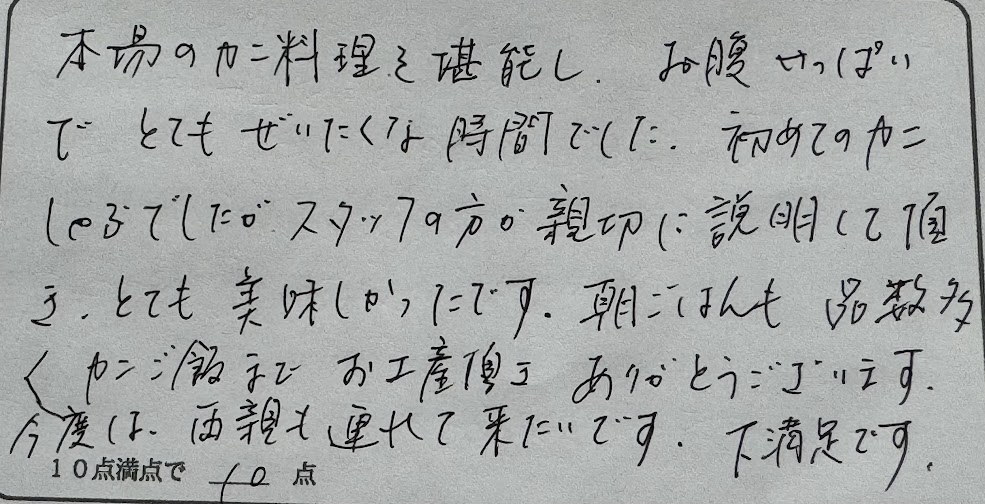 本場のカニ料理を堪能し、お腹いっぱい
で とてもぜいたくな時間でした。初めてのカニ
しゃぶでしたが スタッフの方が親切に説明して頂
き、とても美味しかったです。朝ごはんも 品数多
く カニご飯まで お土産頂き ありがとうございます。
今度は、両親も連れて来たいです。 満足です。
10点満点で 10 点